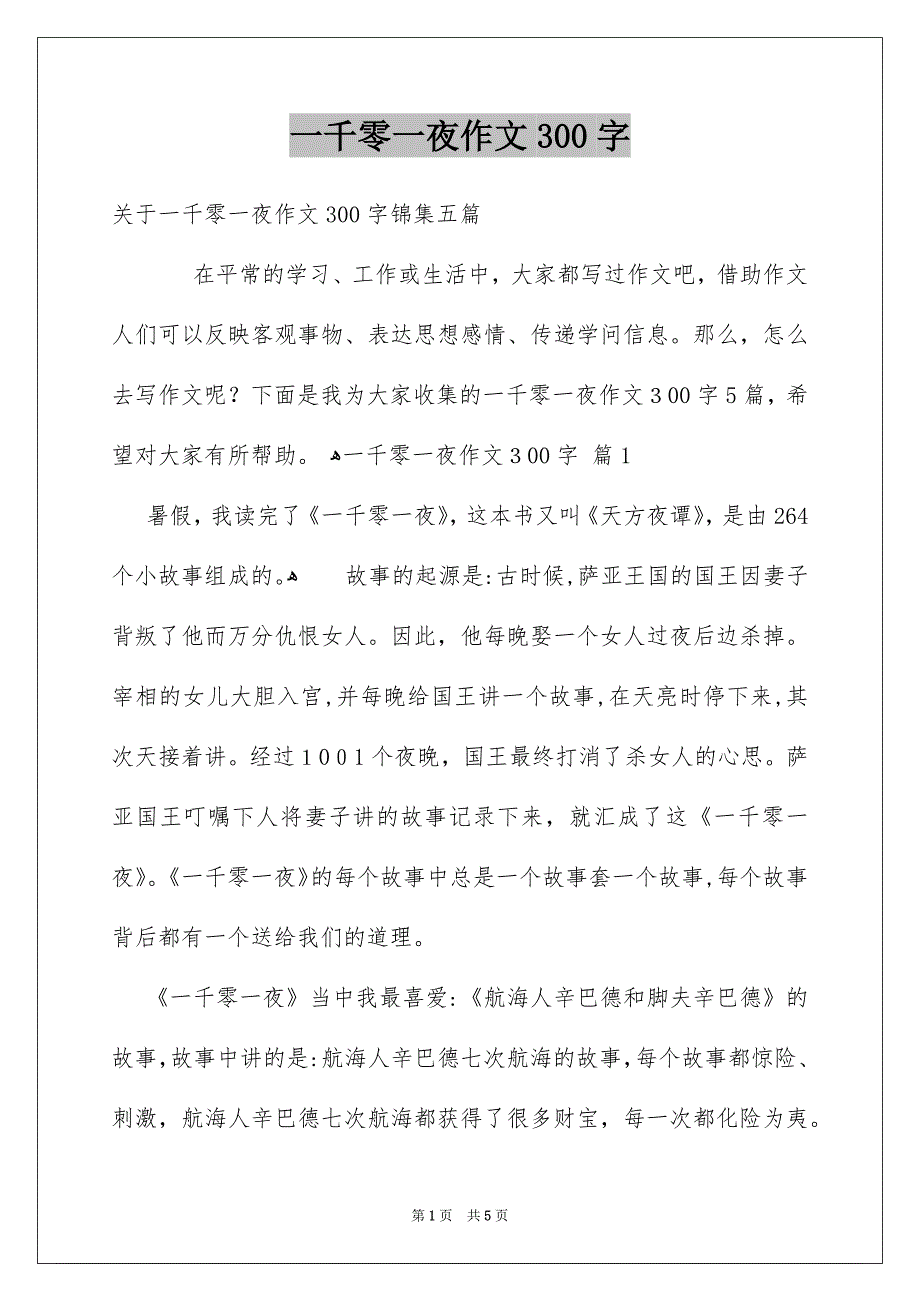 一千零一夜作文300字
关于一千零一夜作文300字锦集五篇
在平常的学习、工作或生活中，大家都写过作文吧，借助作文
人们可以反映客观事物、表达思想感情、传递学问信息。那么，怎么
去写作文呢？下面是我为大家收集的一千零一夜作文300字5篇，希
望对大家有所帮助。 ﻫ一千零一夜作文300字 篇1
暑假，我读完了《一千零一夜》，这本书又叫《天方夜谭》，是由264
个小故事组成的。ﻫ 故事的起源是:古时候,萨亚王国的国王因妻子
背叛了他而万分仇恨女人。因此，他每晚娶一个女人过夜后边杀掉。
宰相的女儿大胆入宫,并每晚给国王讲一个故事,在天亮时停下来,其
次天接着讲。经过1001个夜晚，国王最终打消了杀女人的心思。萨
亚国王叮嘱下人将妻子讲的故事记录下来，就汇成了这《一千零一
夜》。《一千零一夜》的每个故事中总是一个故事套一个故事,每个故事
背后都有一个送给我们的道理。
《一千零一夜》当中我最喜爱:《航海人辛巴德和脚夫辛巴德》的
故事,故事中讲的是:航海人辛巴德七次航海的故事,每个故事都惊险、
刺激，航海人辛巴德七次航海都获得了很多财宝，每一次都化险为夷。
第1页 共5页